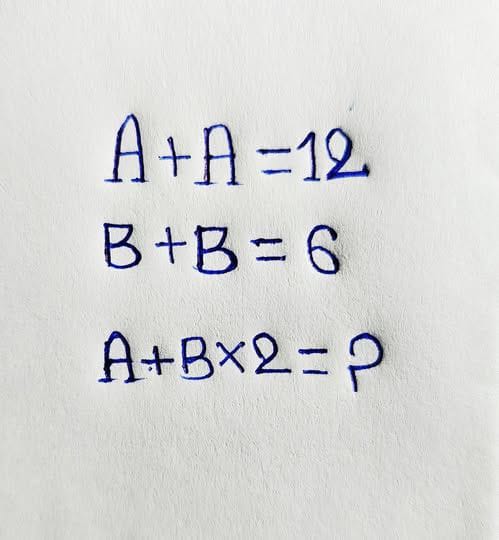 A+A=12
B+B=6
A+B×2=?